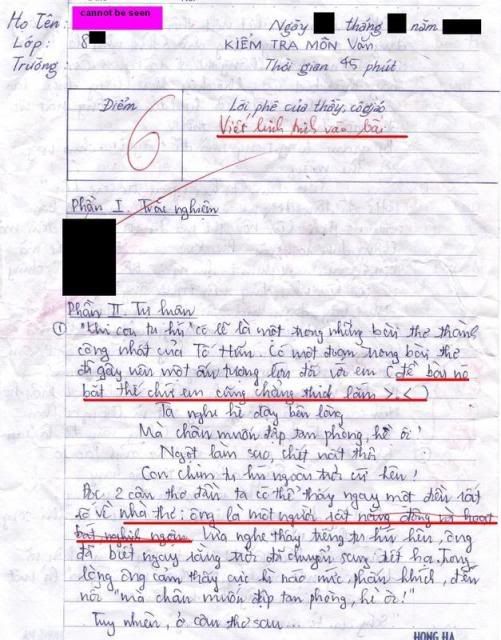 Họ Tên: cannot be seen
Ngày tháng năm
Lớp: 8
KIỂM TRA MÔN Văn
Trường:
Thời gian 45 phút
Điểm
Lời phê của thầy, cô giáo
6
Viết linh tinh vào bài
Phần I. Trắc nghiệm
Phần II. Tự luận
① "Khi con tu hú" có lẽ là một trong những bài thơ thành
công nhất của Tố Hữu. Có một đoạn trong bài thơ
đã gây nên một ấn tượng lớn đối với em (đề bài nó
bắt thế chứ em cũng chẳng thích lắm >.<)
Ta nghe hè dậy bên lòng
Mà chân muốn đạp tan phòng, hè ôi!
Ngột làm sao, chết uất thôi
Con chim tu hú ngoài trời cứ kêu!
Đọc 2 câu thơ đầu ta có thể thấy ngay một điều rất
rõ về nhà thơ: ông là một người rất năng động và hoạt
bát nghịch ngợm. Vừa nghe thấy tiếng tu hú kêu, ông
đã biết ngay rằng trời đã chuyển sang tiết hạ. Trong
lòng ông cảm thấy cực kì náo nức, phấn khích, đến
nỗi "mà chân muốn đạp tan phòng, hè ôi!"
Tuy nhiên, ở câu thơ sau
HONG HA